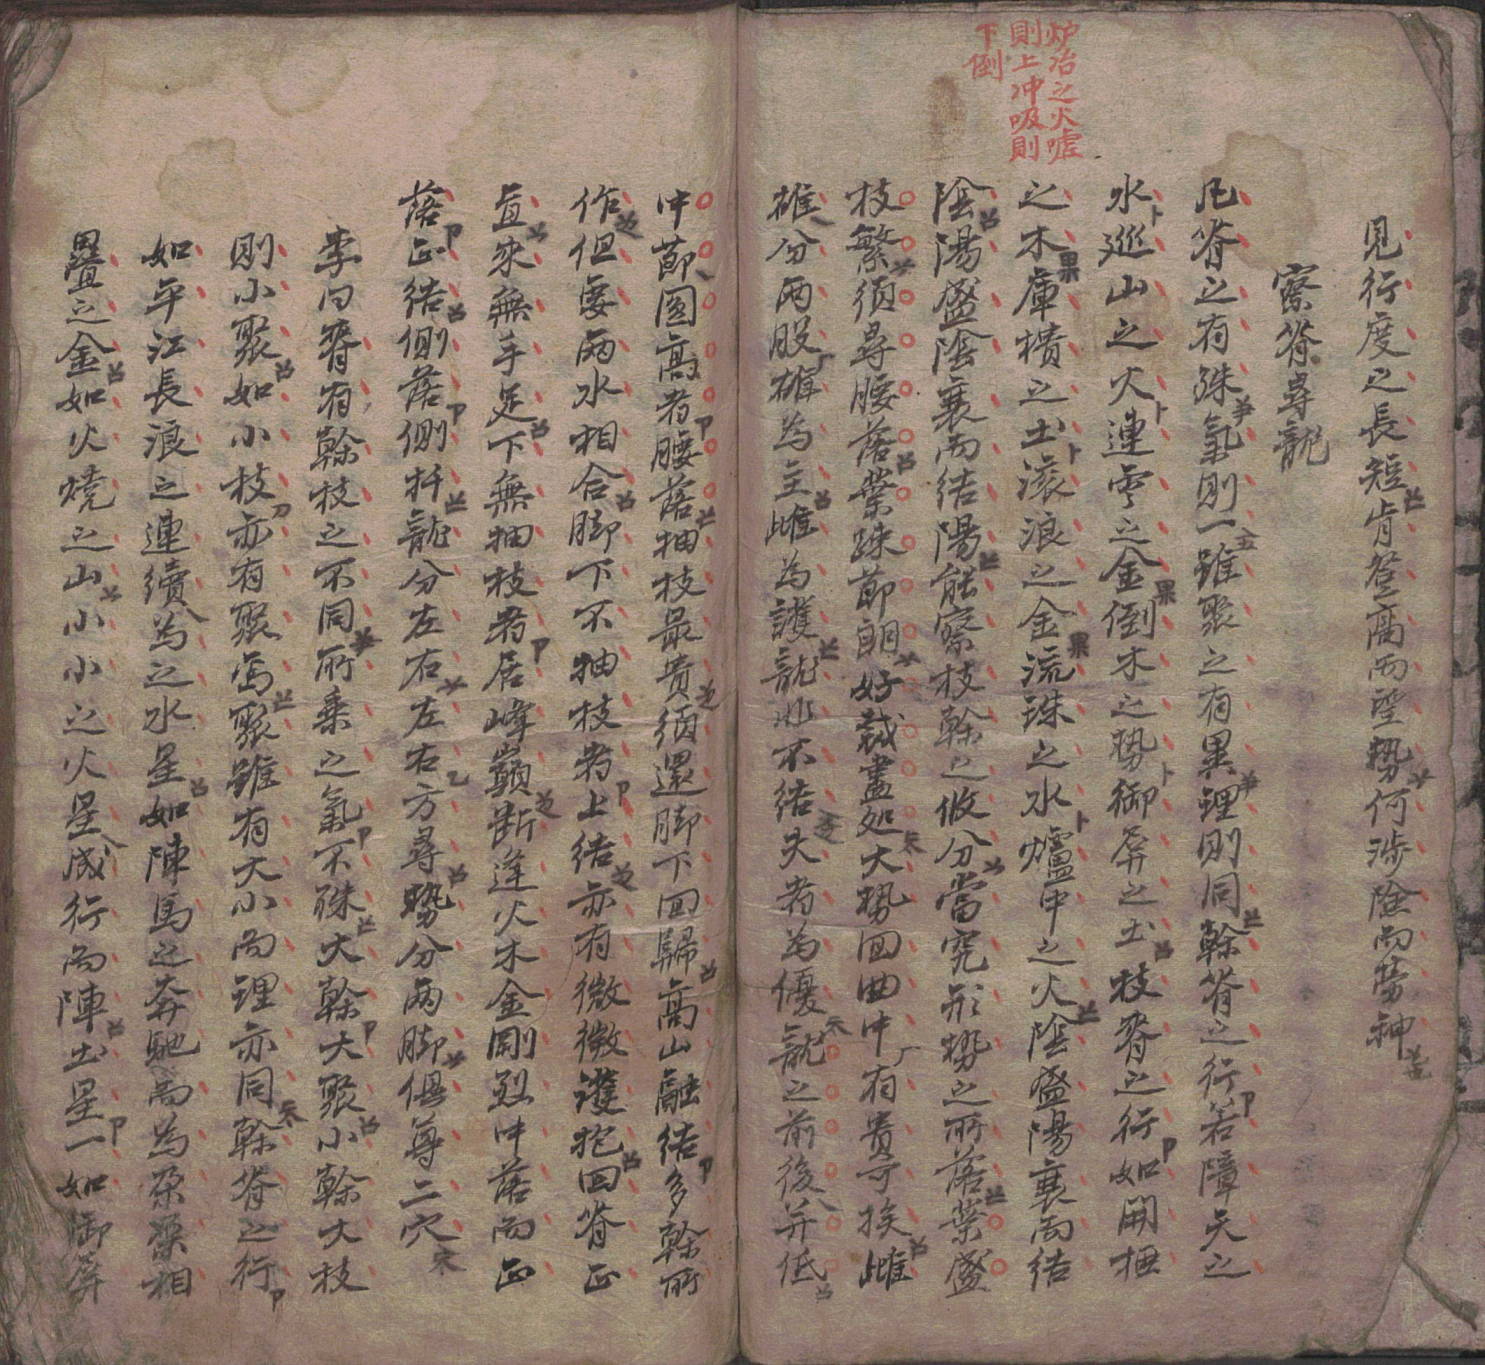 炉冶之火嘘
則上冲吸則
下倒
見行度之長短肯登高而望勢何涉險而勞神
察脊尋龍
凡脊之有殊氣則一雖聚之有異理則同幹脊之行若障天之
水巡山之火連雲之金倒木之勢御屏之土枝脊之行如開極
之木庫樻之土滾浪之金流珠之水爐中之火陰盛陽衰而結
陰陽盛陰衰而結陽能察枝幹之收分當究形勢之所落葉盛
枝繁須尋腰落葉踈節朗好裁盡処大勢回曲中有貴可挨雌
雄分兩股雄為主雌為護龍逃不結失者為優龍之前後并低
中節圓高者腰落抽枝最貴須還脚下回歸高山融結多幹所
作但要兩水相合脚下不抽枝者上結亦有微微護抱回脊正
直來無手足下無抽枝者居峰巔断逢火木金剛烈中落而正
落正結側落側扦龍分左右左右方尋勢分兩脚俱尊二穴
李曰脊有幹枝之不同所乘之氣不殊大幹大聚小幹大枝
則小聚如小枝亦有聚焉聚雖有大小而理亦同幹脊之行
如平江長浪之連續為之水星如陣馬之奔馳而為朶朶相
疊之金如火燒之山小小之火星成行而陣土星一如御屏